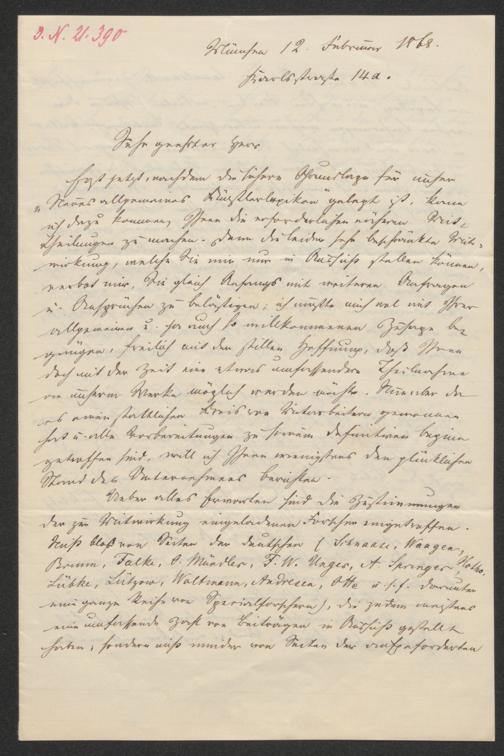 J. N. 21.390
München 12. Februar 1868.
Karlsstraße 14a.
Sehr geehrter Herr
Erst jetzt, nachdem die sichere Grundlage für unser
"Neues allgemeines Künstlerlexikon" gelegt ist, kann
ich dazu kommen, Ihnen die erforderlichen näheren Mit-
theilungen zu machen. Denn die leider sehr beschränkte Mit-
wirkung, welche Sie mir nur in Aussicht stellen können,
verbot mir, Sie gleich Anfangs mit weiteren Anfragen
u. Ansprüchen zu belästigen; ich mußte mich vel mit Ihrer
allgemeinen u. ja auch so willkommenen Zusage be-
gnügen, freilich mit der stillen Hoffnung, daß Ihnen
doch mit der Zeit eine etwas umfassendere Theilnahme
an unserm Werke möglich werden möchte. Nunmehr da
es einen stattlichen Kreis von Mitarbeitern gewonnen
hat u. alle Vorbereitungen zu seinem definitiven Beginn
getroffen sind, will ich Ihnen wenigstens den glücklichen
Stand des Unternehmens berichten.
Ueber alles Erwarten sind die Zustimmungen
der zur Mitwirkung eingeladenen Forscher eingetroffen.
Nicht blos von Seiten der deutschen (Schnaase, Waagen,
Brunn, Falke, O. Mündler, F. W. Unger, A. Springer, Hotho,
Lübke, Lützow, Woltmann, Andresen, Otte u. s. f. darunter
eine ganze Reihe von Spezialforschern), die zudem meistens
eine umfassende Zahl von Beiträgen in Aussicht gestellt
haben, sondern nicht minder von Seiten der aufgeforderten